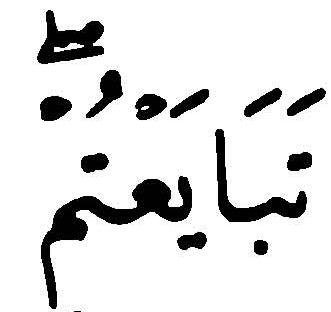 تَبَايَعْتُمْۖ